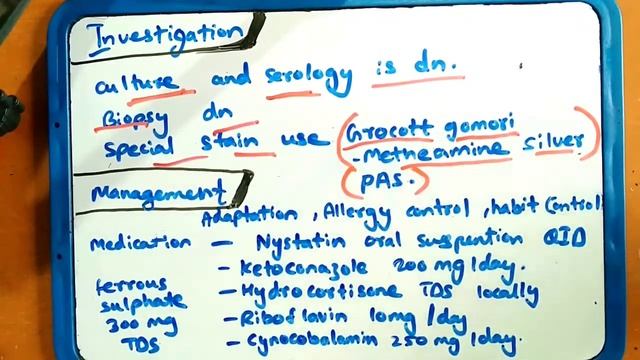 Investigation
culture and serology is dn.
Biopsy dn
special stain use (Grocott gomori
-Metheamine silver)
(PAS.)
Management
Adaptation, Allergy control, habit control
Medication - Nystatin oral suspention QID
- Ketoconazole 200 mg/day.
ferrous sulphate 300 mg TDS
- Hydrocortisone TDS locally
- Riboflavin 10mg/day
- Cynocobalamin 250 mg/day.